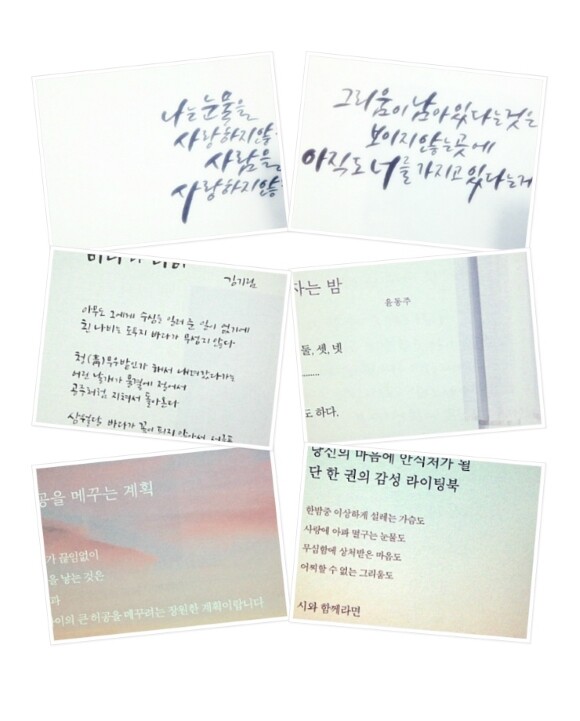 나는 눈물을
사랑하지 않
사람을
사랑하지 않
그리움이 남아 있다는 것은
보이지 않는 곳에
아직도 너를 가지고 있다는 게
김기림
아무도 그에게 수심을 일러 준 일이 없기에
흰 나비는 도무지 바다가 무섭지 않다
청(靑)무우밭인가 해서 내려갔다가는
어린 날개가 물결에 절어서
공주처럼 지쳐서 돌아온다
삼월달 바다가 꽃이 피지 않아서 서글픈
하는 밤
윤동주
둘, 셋, 넷
..........
도 하다.
공을 메꾸는 계획
가 끊임없이
을 낳는 것은
과
이의 큰 허공을 메꾸려는 장원한 계획이랍니다
당신의 마음에 안식처가 될
단 한 권의 감성 라이팅북
한밤중 이상하게 설레는 가슴도
사랑에 아파 떨구는 눈물도
무심함에 상처받은 마음도
어찌할 수 없는 그리움도
시와 함께라면